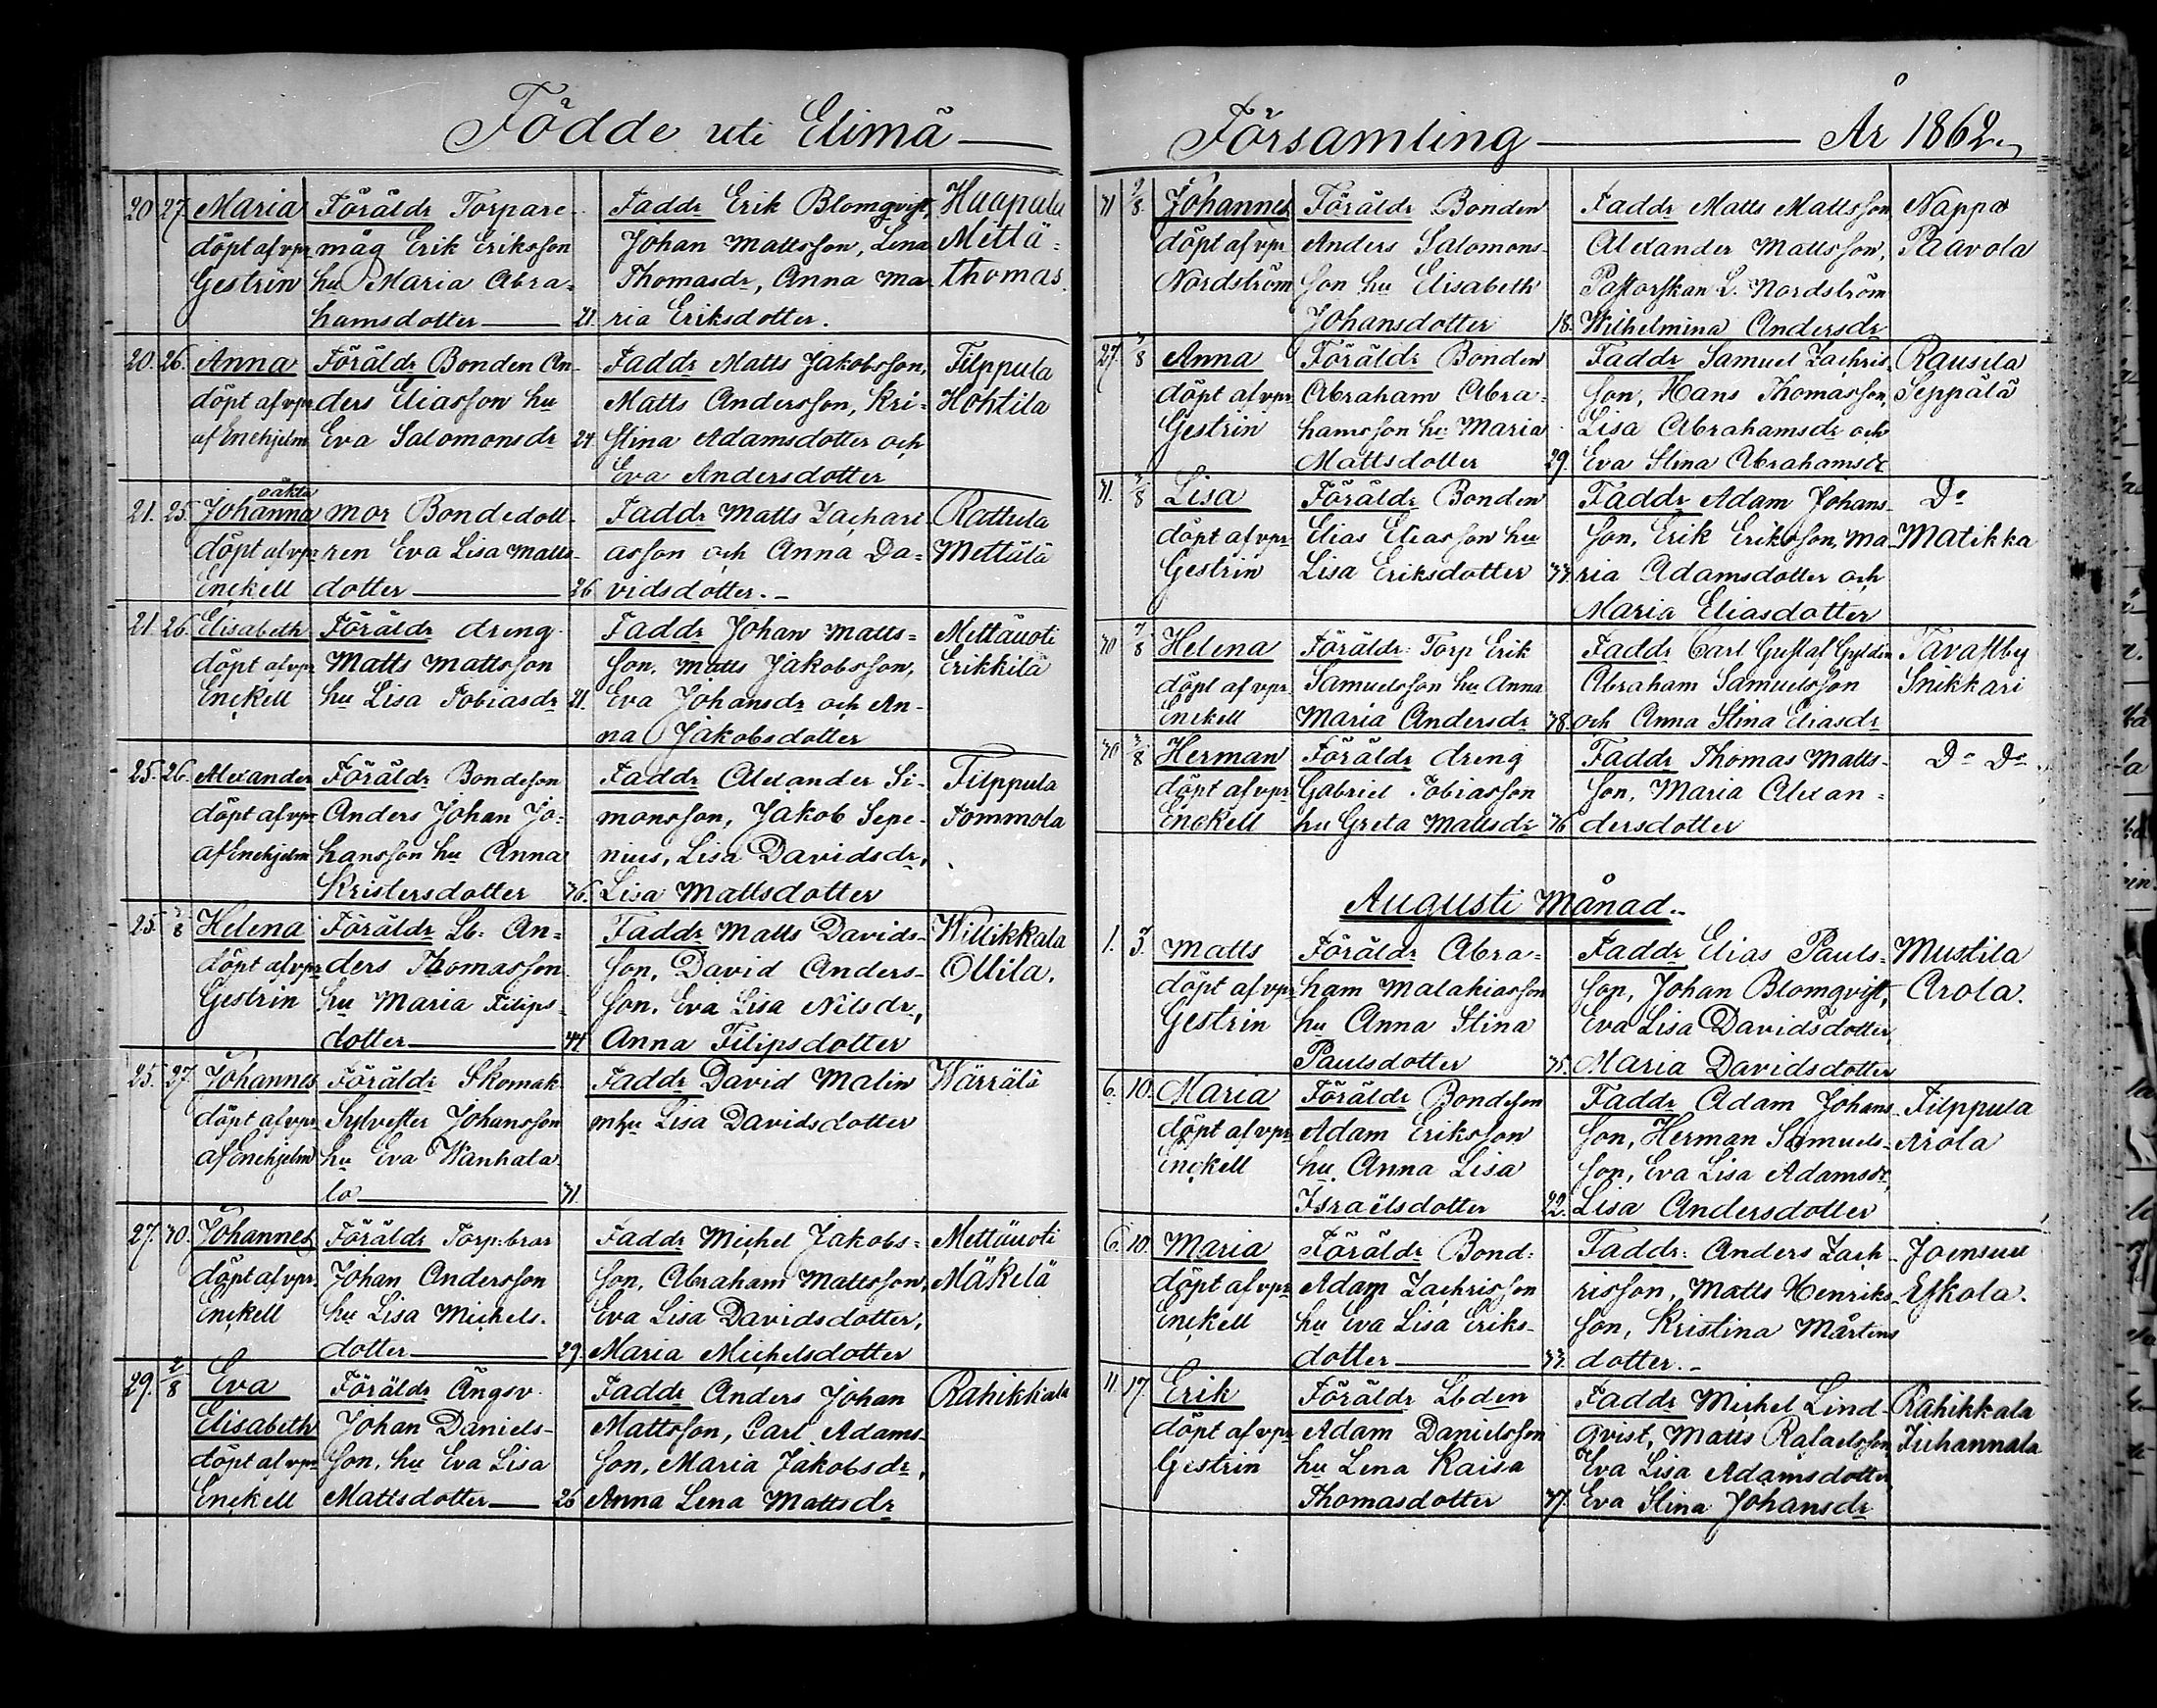 Födde uti Elimä
20 27. Maria Föräldr Torpare- Faddr Erik Blomqvist, Haapala
döpt af vpr måg Erik Eriksson Johan Mattsson, Lena Mettä-
Gestrin hu Maria Abra- Thomasdr, Anna Ma- thomas.
hamsdotter 21. ria Eriksdotter.
20. 26. Anna Föräldr Bonden An- Faddr Matts Jakobsson, Filppula
döpt af vpr ders Eliasson hu Matts Andersson, Kri- Hohtila
af Enehjelm Eva Salomonsdr 24 stina Adamsdotter och
Eva Andersdotter
oäkta
21. 25. Johanna mor Bondedott- Faddr Matts Zachari- Rattula
döpt af vpr ren Eva Lisa Matts- asson och Anna Da- Mettälä
Enckell dotter 26. vidsdotter.-
21. 26. Elisabeth Föräldr dreng Faddr Johan Matts- Mettäuoti
döpt af vpr Matts Mattsson son, Matts Jakobsson, Erikkilä
Enckell hu Lisa Tobiasdr 21. Eva Johansdr och An-
na Jakobsdotter
25. 26. Alexander Föräldr Bondeson Faddr Alexander Si- Filppula
döpt af vpr Anders Johan Jo- monsson, Jakob Sepe- Tommola
af Enehjelm hansson hu Anna nius, Lisa Davidsdr,
Kristersdotter 36. Lisa Mattsdotter
25. 3/8 Helena Föräldr Lb. An- Faddr Matts Davids- Willikkala
döpt af vpr ders Thomasson son, David Anders- Ollila.
Gestrin hu Maria Filips- son, Eva Lisa Nilsdr,
dotter 44 Anna Filipsdotter
25. 27. Johannes Föräldr Skomak Faddr David Malin Värrälä
döpt af vpr Sylvester Johansson m hu Lisa Davidsdotter
af Enehjelm hu Eva Wanhala
la 31.
27. 30. Johannes Föräldr Torp:bror Faddr Michel Jakobs- Mettäuoti
döpt af vpr Johan Andersson son, Abraham Mattsson, Mäkelä
Enckell hu Lisa Michels- Eva Lisa Davidsdotter,
dotter 29. Maria Michelsdotter
29. 2/8 Eva Föräldr Ängsv. Faddr Anders Johan Rahikkala
Elisabeth Johan Daniels- Mattsson, Carl Adams-
döpt af vpr son, hu Eva Lisa son, Maria Jakobsdr,
Enckell Mattsdotter 26 Anna Lena Mattsdr
Församling År 1862.
31 2/8. Johannes Föräldr Bonden Faddr Matts Mattsson Nappa
döpt af vpr Anders Salomons- Alexander Mattsson, Paavola
Nordström son hu Elisabeth Pastorskan L. Nordström
Johansdotter 18. Wilhelmina Andersdr
27. 3/8 Anna Föräldr Bonden Faddr Samuel Zachris- Rausila
döpt af vpr Abraham Abra- son, Hans Thomasson, Seppälä
Gestrin hamsson hu Maria Lisa Abrahamsdr och
Mattsdotter 29. Eva Stina Abrahamsdr
31. 3/8 Lisa Föräldr Bonden Faddr Adam Johans- Do
döpt af vpr Elias Eliasson hu son, Erik Eriksson, Ma- Matikka
Gestrin Lisa Eriksdotter 33. ria Adamsdotter och
Maria Eliasdotter
30 3/8 Helena Föräldr Torp Erik Faddr Carl Gustaf Gyldén Tavastby
döpt af vpr Samuelsson hu Anna Abraham Samuelsson Snikkari
Enckell Maria Andersdr 38. och Anna Stina Eliasdr
30 3/8 Herman Föräldr dreng Faddr Thomas Matts- Do Do
döpt af vpr Gabriel Tobiasson son, Maria Alexan-
Enckell hu Greta Mattsdr 36 dersdotter
Augusti Månad.
1. 3. Matts Föräldr Abra- Faddr Elias Pauls- Mustila
döpt af vpr ham Malakiasson son, Johan Blomqvist, Arola.
Gestrin hu Anna Stina Eva Lisa Davidsdotter,
Paulsdotter 35. Maria Davidsdotter
6. 10. Maria Föräldr Bondeson Faddr Adam Johans- Filppula
döpt af vpr Adam Eriksson son, Herman Samuels- Arola
Enckell hu Anna Lisa son, Eva Lisa Adamsdr,
Israëlsdotter 22. Lisa Andersdotter
6. 10. Maria Föräldr Bond: Faddr: Anders Zach- Joensuu
döpt af vpr Adam Zachrisson risson, Matts Henriks- Eskola.
Enckell hu Eva Lisa Eriks- son, Kristina Mårtens
dotter 33. dotter.-
11. 17. Erik Föräldr Lbden Faddr Michel Lind- Rahikkala
döpt af vpr Adam Danielsson qvist, Matts Rafaelsson Juhannala
Gestrin hu Lena Kaisa Eva Lisa Adamsdotter
Thomasdotter 37. Eva Stina Johansdr